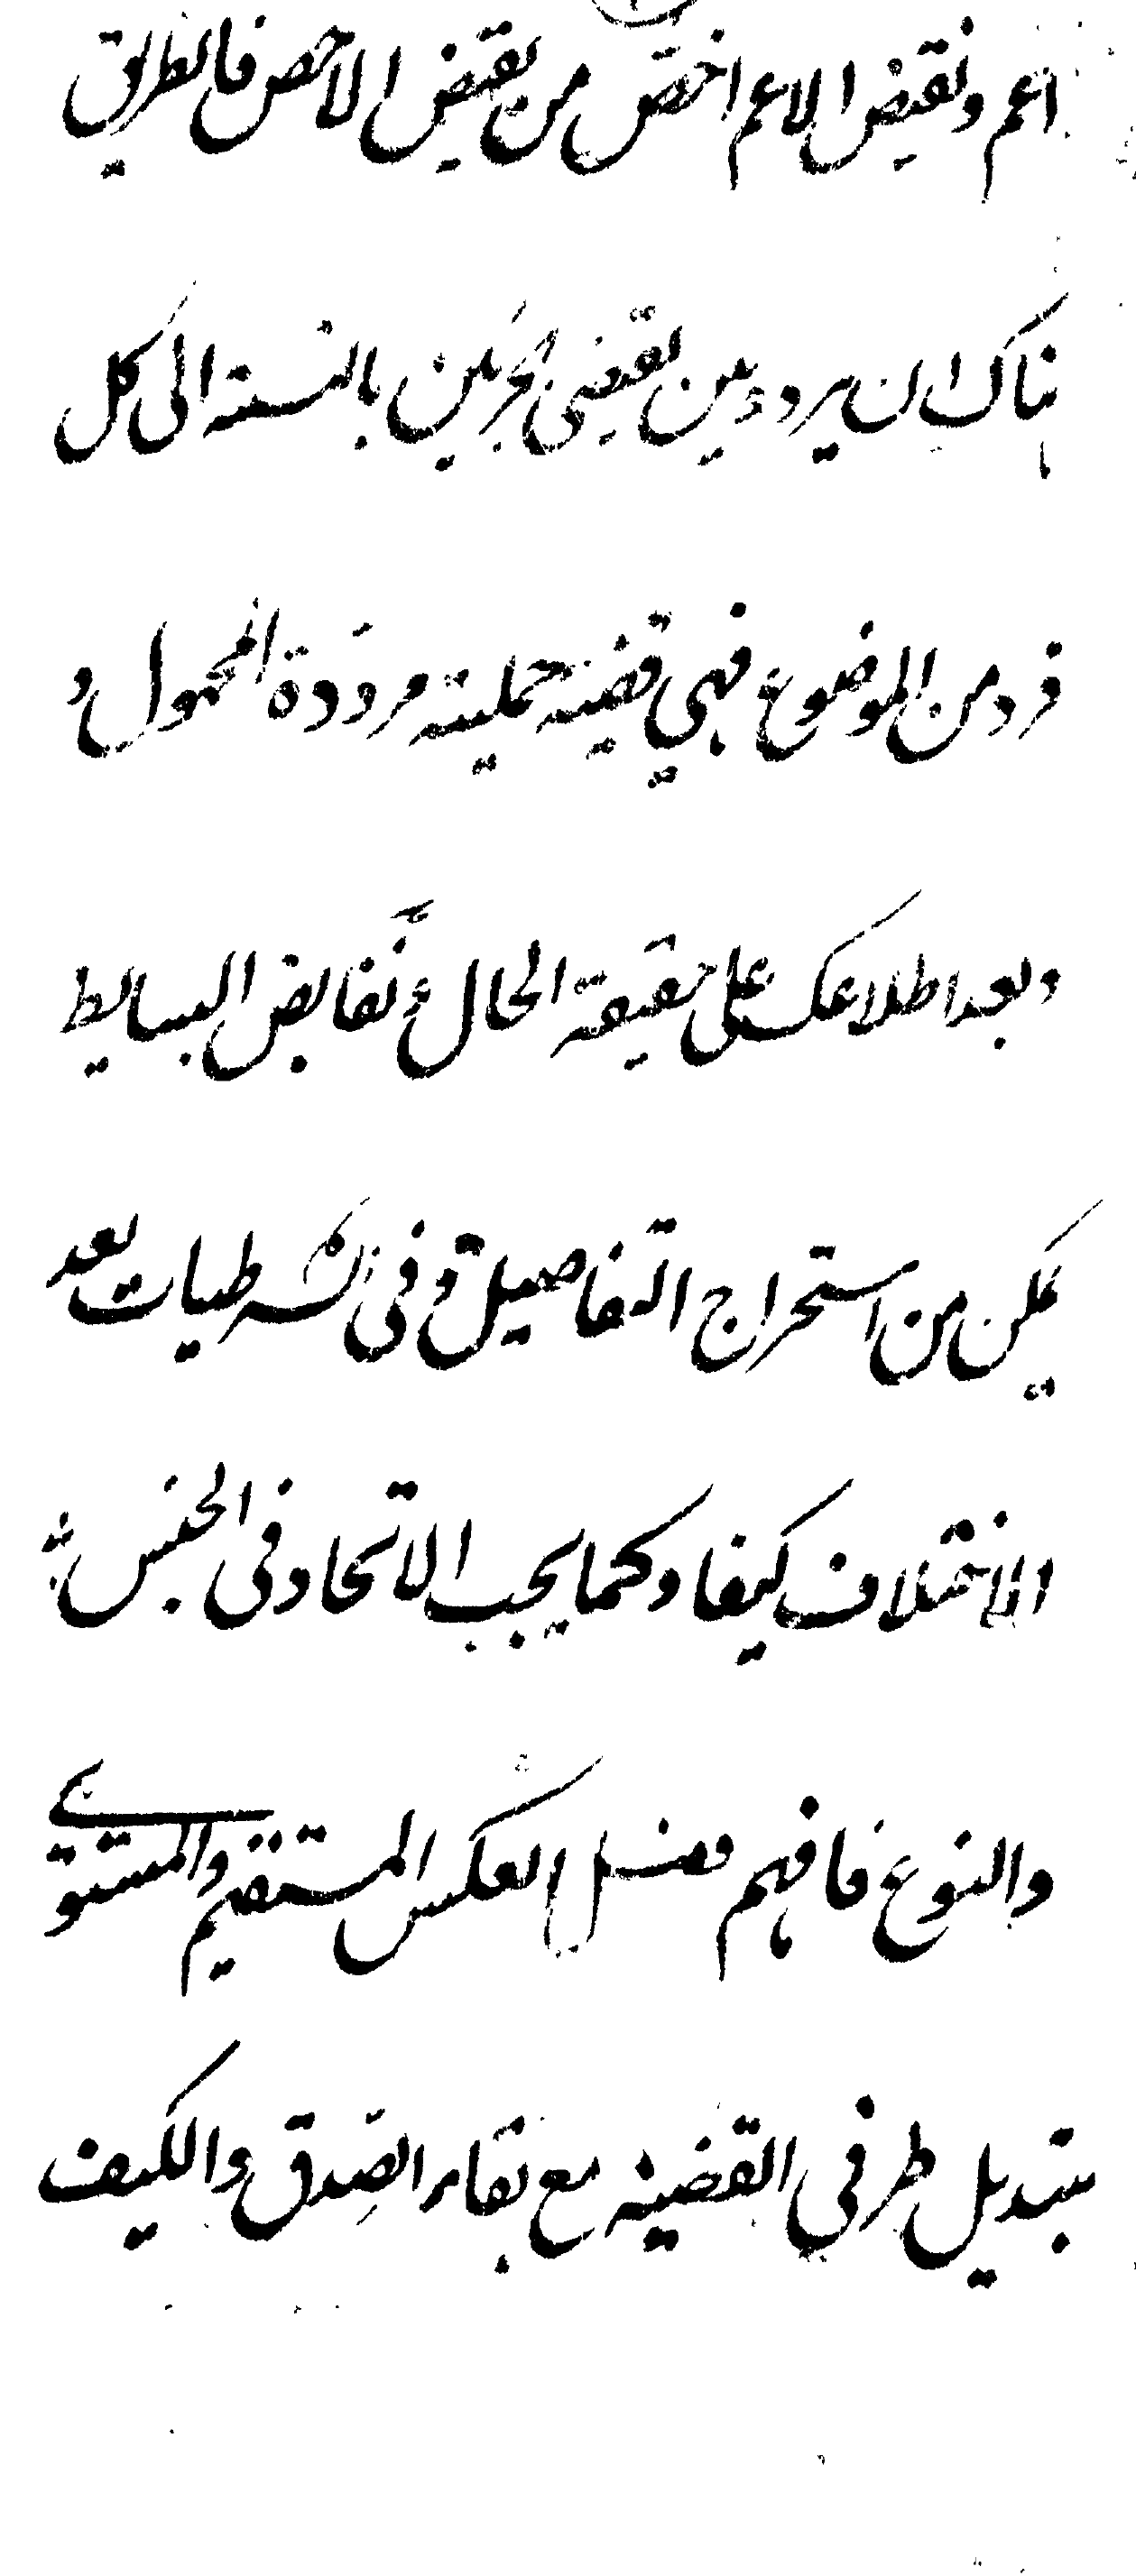 اعم ونقيض الاعم اخصّ من نقيض الاخص فالطريق
هناك ان يردد بين نقيضى الجزئين بالنسبة الى كل
فرد من الموضوع فهي قضية حملية مرددة المحمول و
وبعد اطلاعك على حقيقة الحال و نقايض البسايط
يمكن من استخراج التفاصيل و فى الشرطيات بعد
الاختلاف كيفا وكما يجب الاتحاد فى الجنس
والنوع فافهم فصل العكس المستقيم والمستوي
تبديل طرفي القضية مع بقاء الصدق والكيف